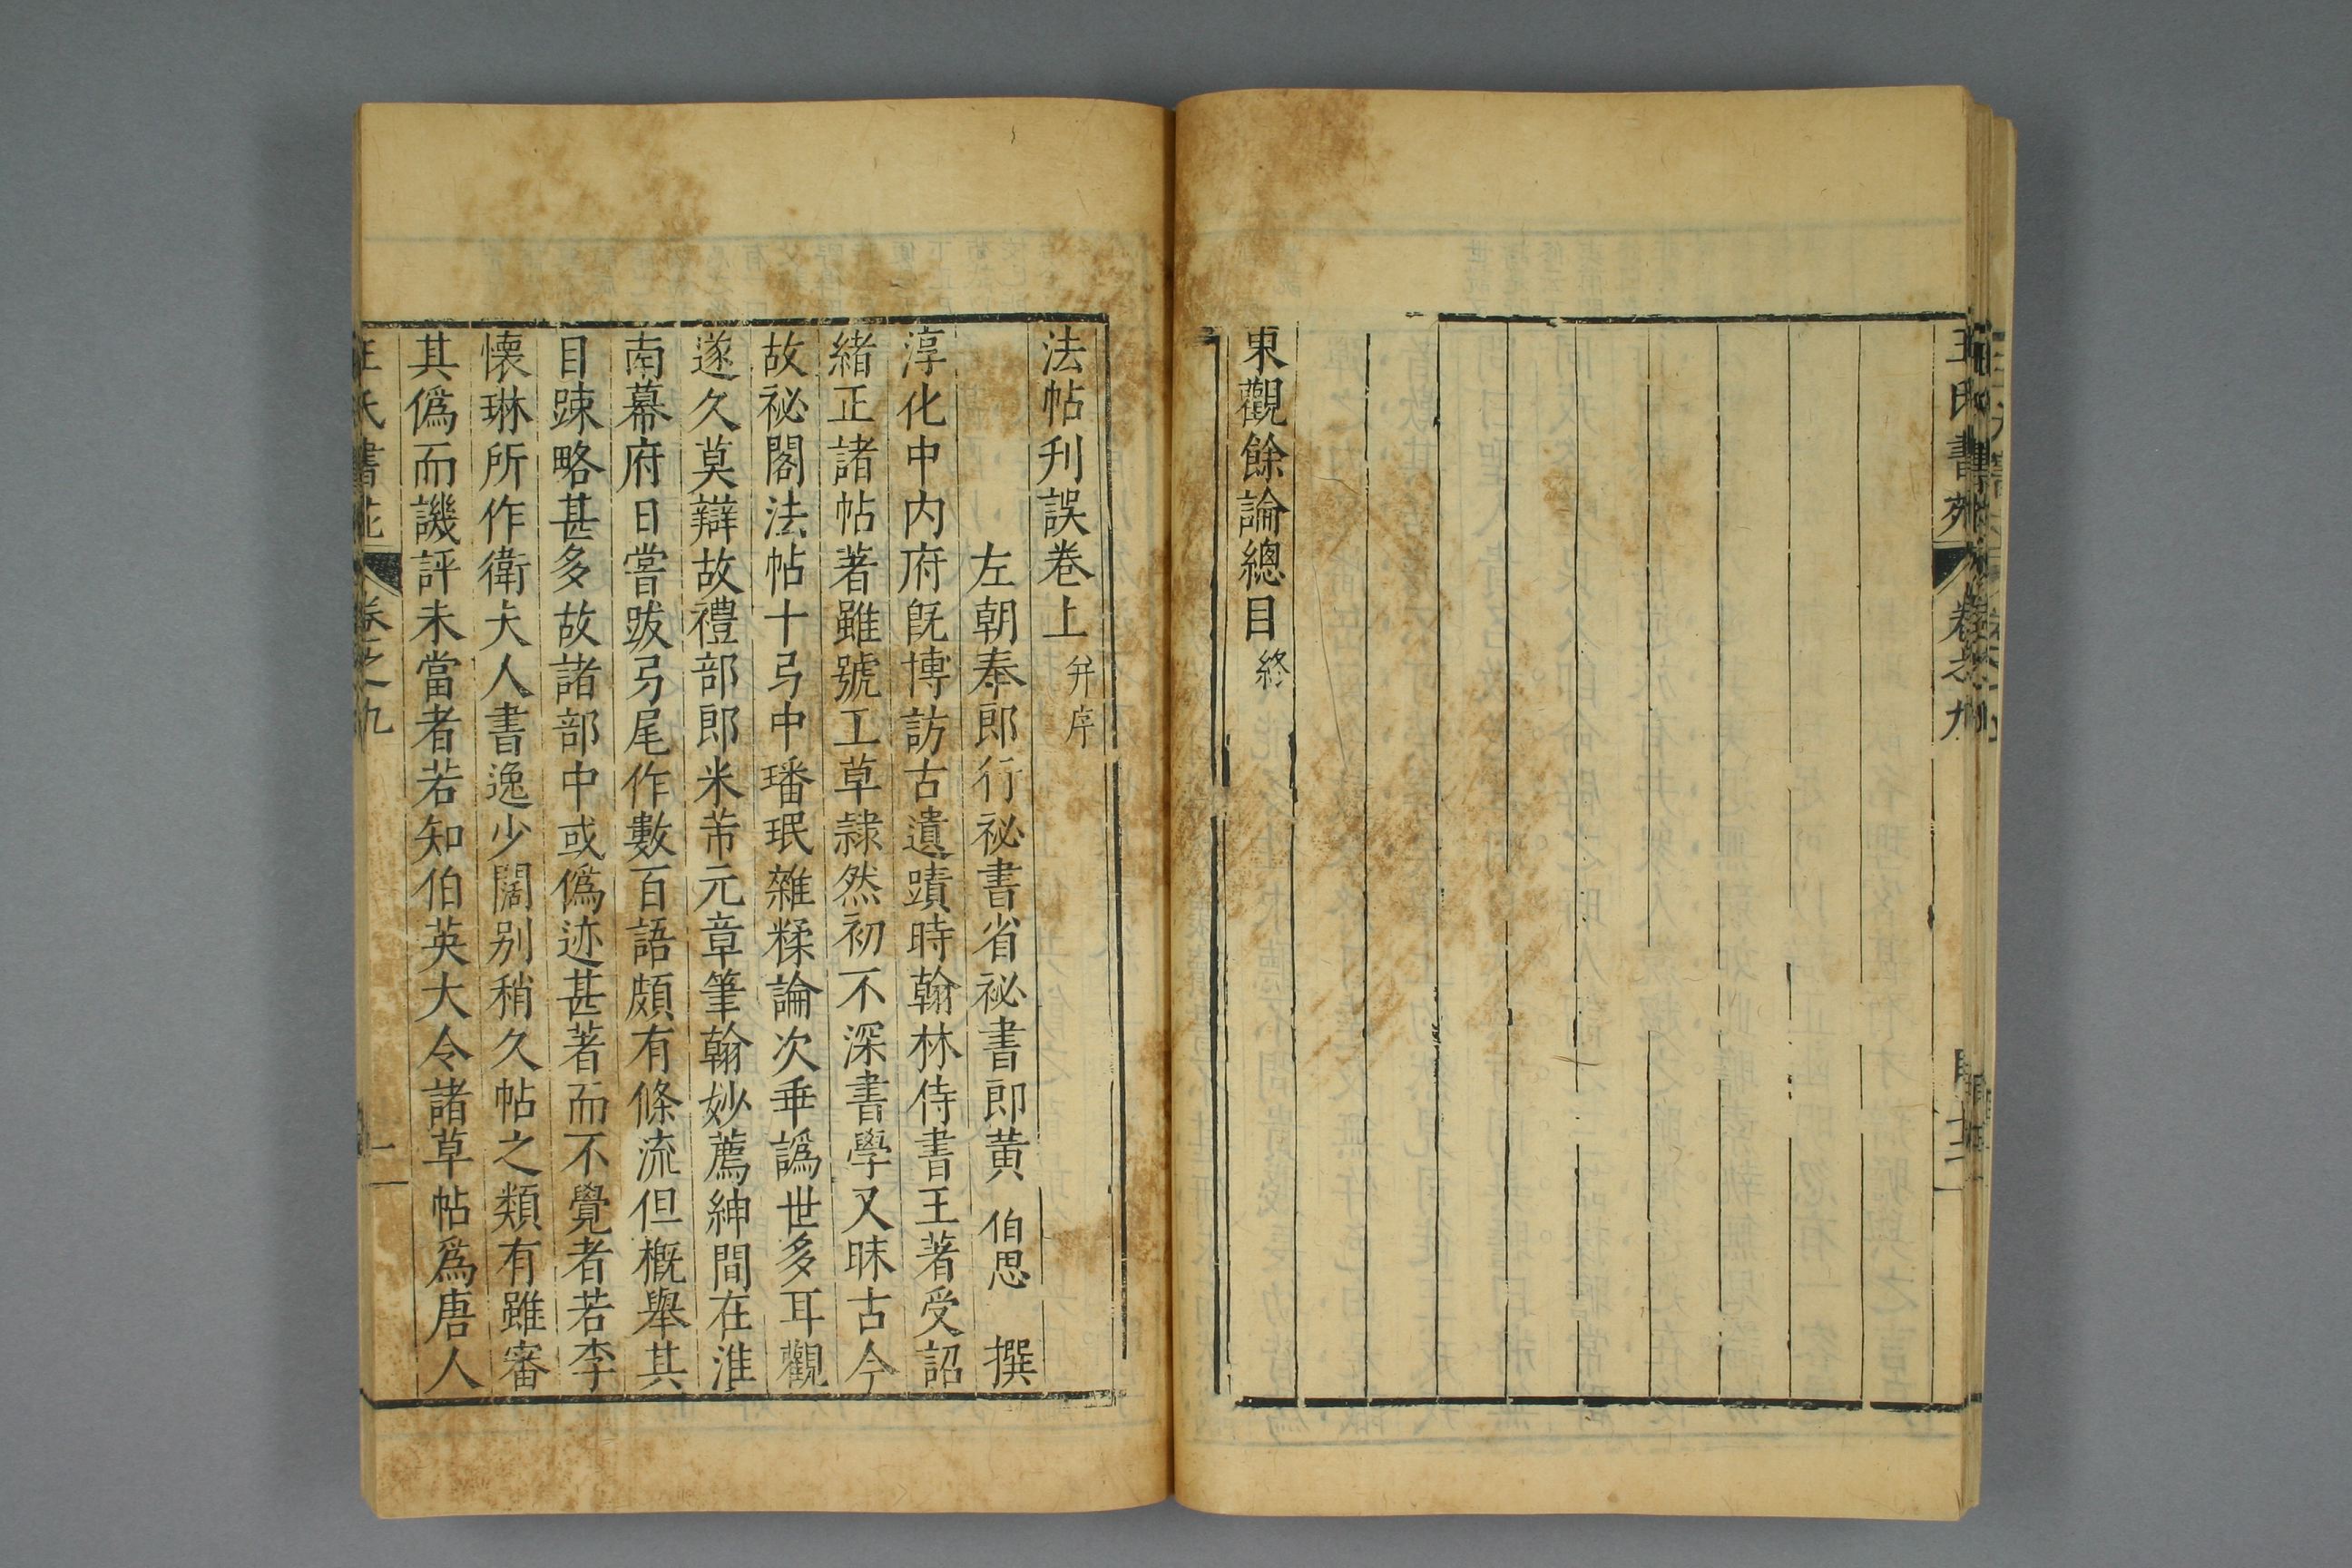 王氏書苑 卷之九
東觀餘論總目終
法帖刋誤卷上 并序
左朝奉郎行祕書省祕書郎黄 伯思 撰
淳化中内府旣博訪古遺蹟時翰林侍書王著受詔
緒正諸帖著雖號工草隷然初不深書學又昧古今
故祕閣法帖十弓中璠珉雜糅論次乖譌世多耳觀
遂久莫辯故禮部郎米芾元章筆翰妙薦紳間在淮
南幕府日嘗跋弓尾作數百語頗有條流但槪舉其
目踈略甚多故諸部中或僞迹甚著而不覺者若李
懐琳所作衛夫人書逸少闊别稍久帖之類有雖審
其僞而譏評未當者若知伯英大令諸草帖爲唐人
王氏書苑 卷之九 二